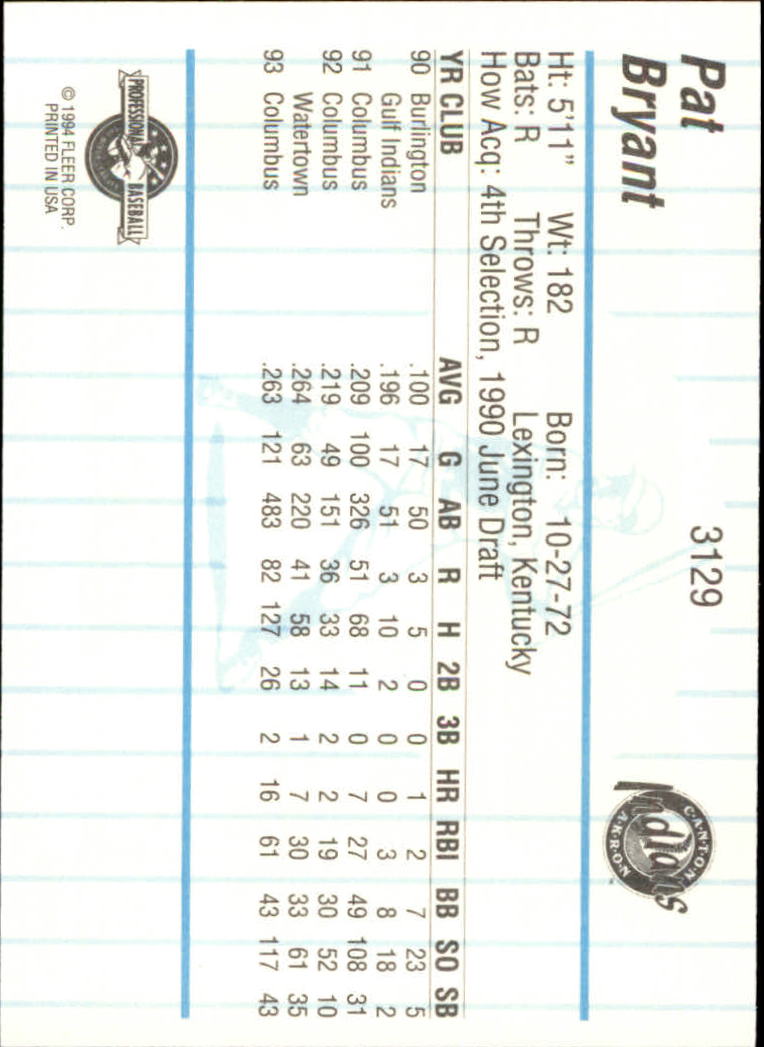 Pat
Bryant
3129
CANTON
Indians
AKRON
Ht: 5'11" Wt: 182 Born: 10-27-72
Bats: R Throws: R Lexington, Kentucky
How Acq: 4th Selection, 1990 June Draft
YR CLUB AVG G AB R H 2B 3B HR RBI BB SO SB
90 Burlington .100 17 50 3 5 0 0 1 2 7 23 5
Gulf Indians .196 17 51 3 10 2 0 0 3 8 18 2
91 Columbus .209 100 326 51 68 11 0 7 27 49 108 31
92 Columbus .219 49 151 36 33 14 2 2 19 30 52 10
Watertown .264 63 220 41 58 13 1 7 30 33 61 35
93 Columbus .263 121 483 82 127 26 2 16 61 43 117 43
PROFESSIONAL BASEBALL
© 1994 FLEER CORP.
PRINTED IN USA